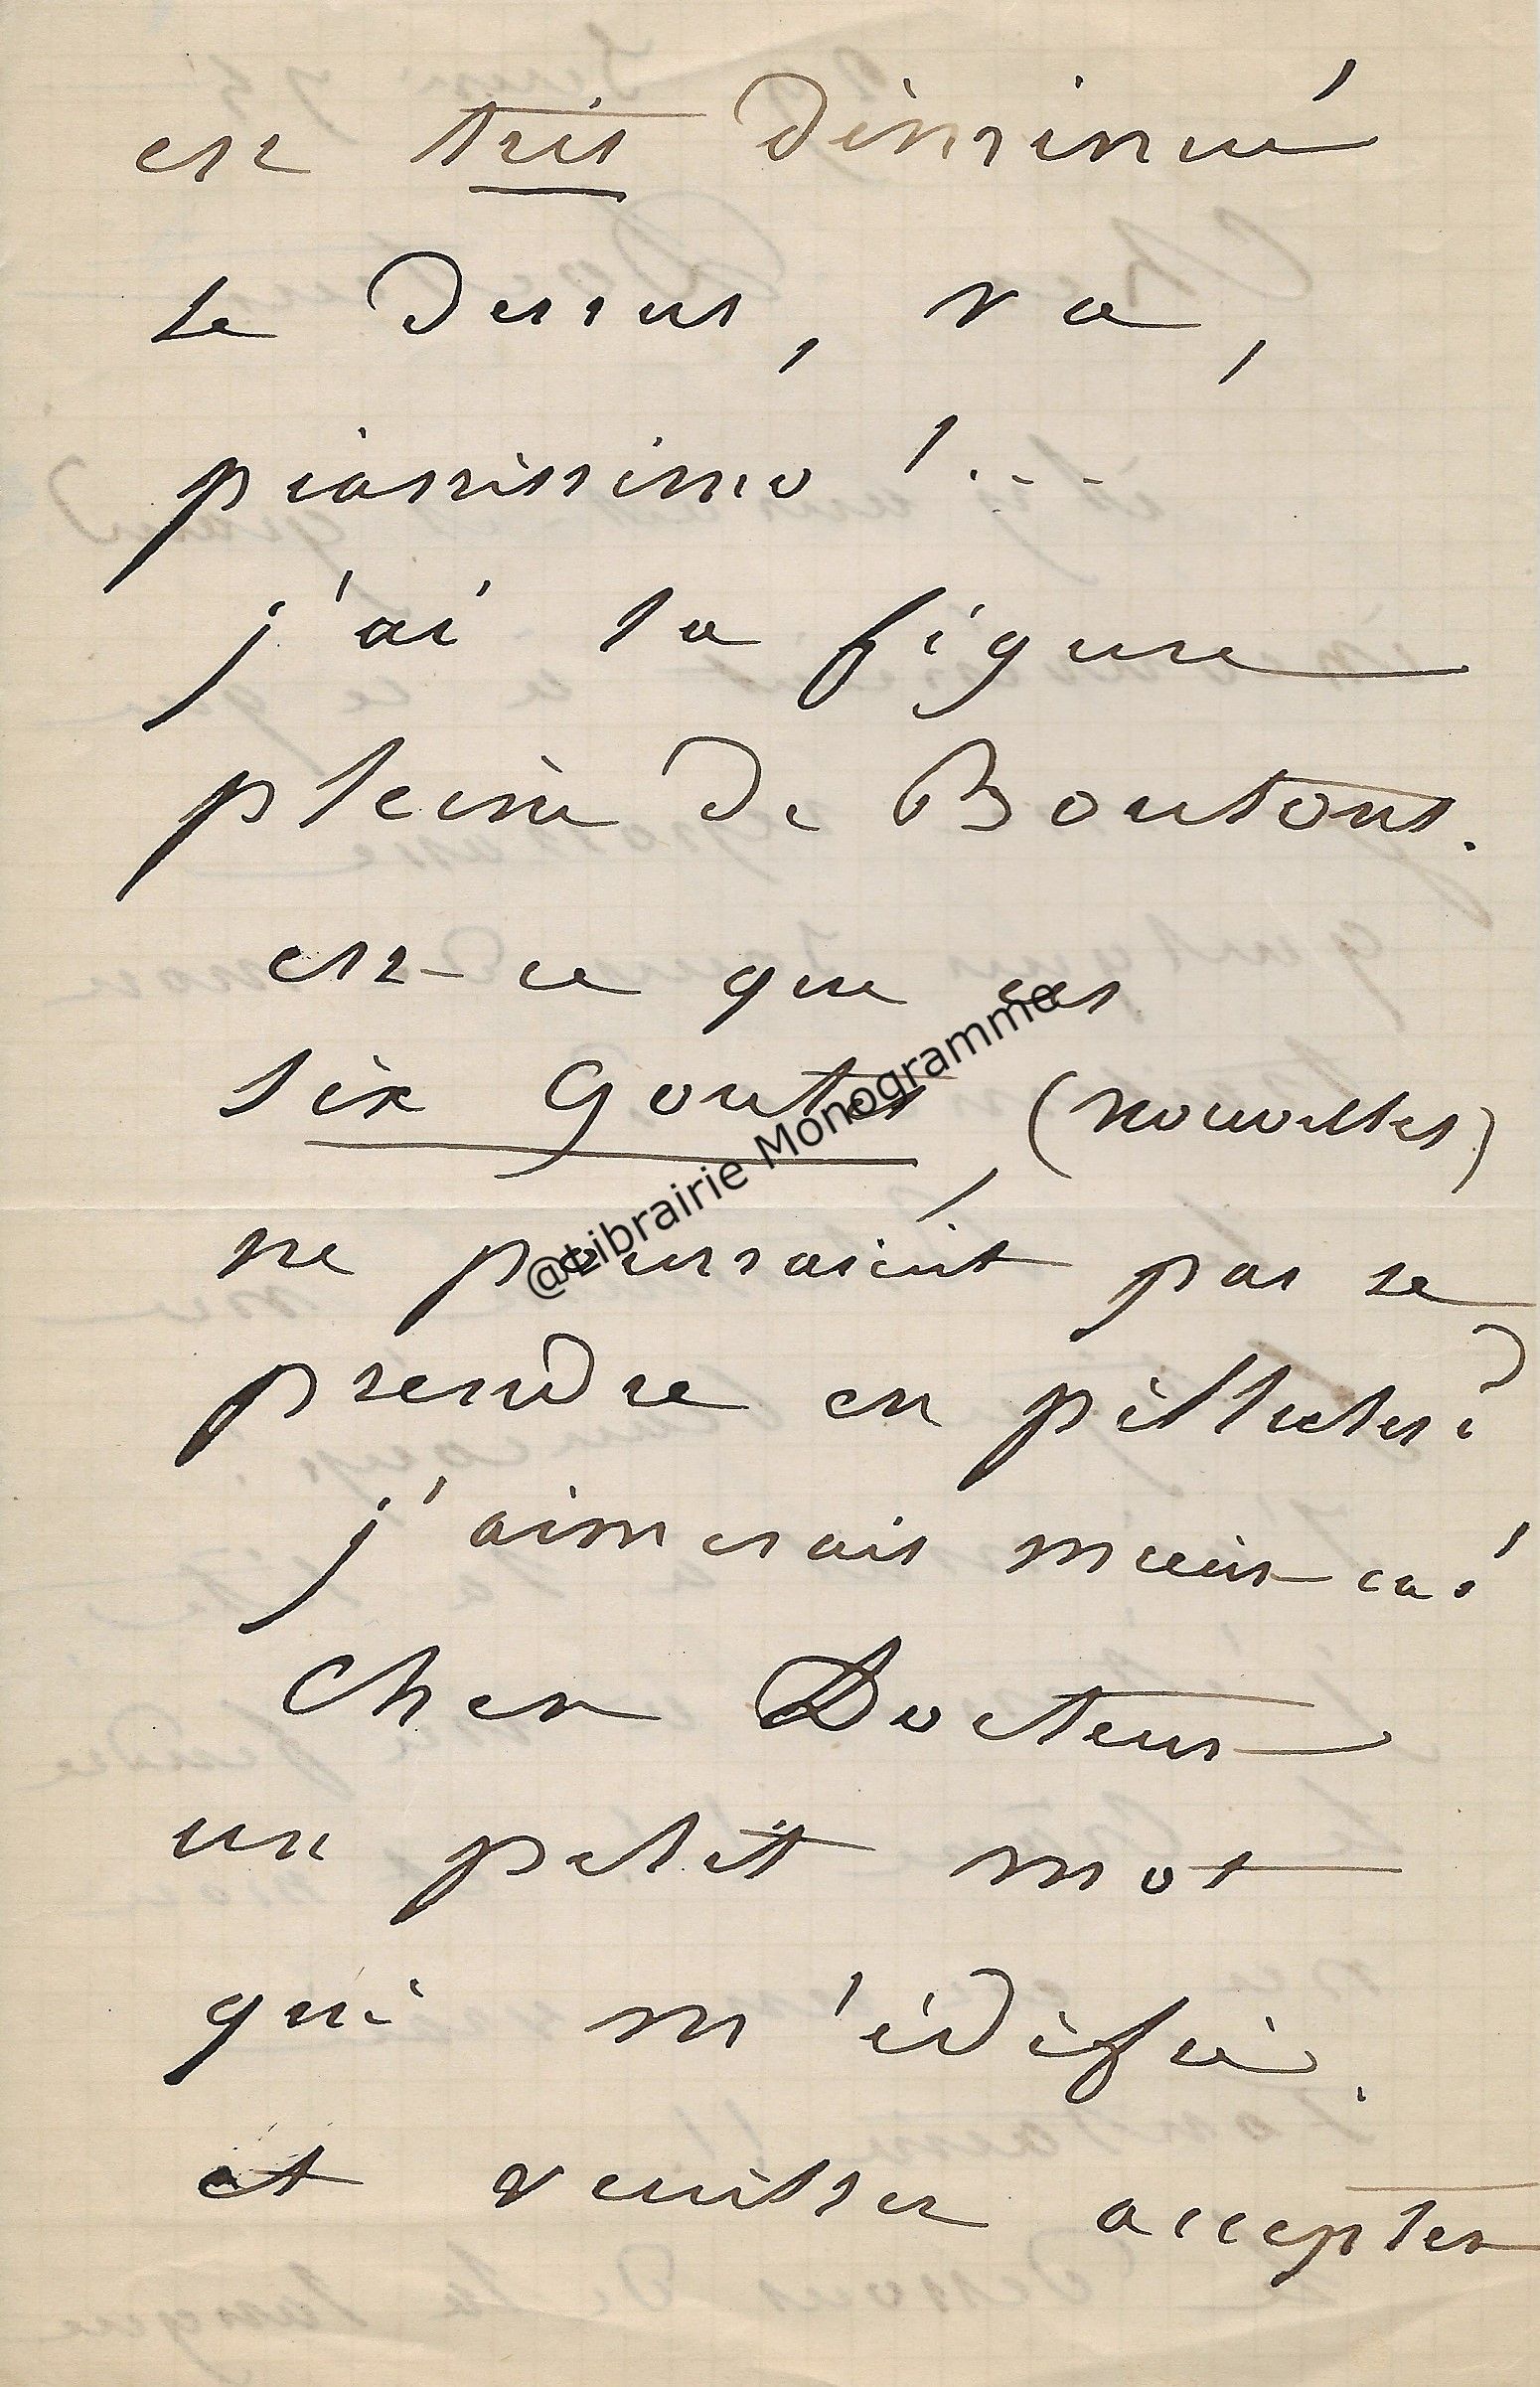 est très diminué
le dessus, va,
pianissimo !...
j'ai la figure
pleine de Boutons.
est-ce que ces
six Goutes, (nouvelles)
ne pourraient pas se
prendre en pillules?
j'aimerais mieux ca!
Cher Docteur
un petit mot
qui m'édifie.
et veuillez accepter
@Librairie Monogramme